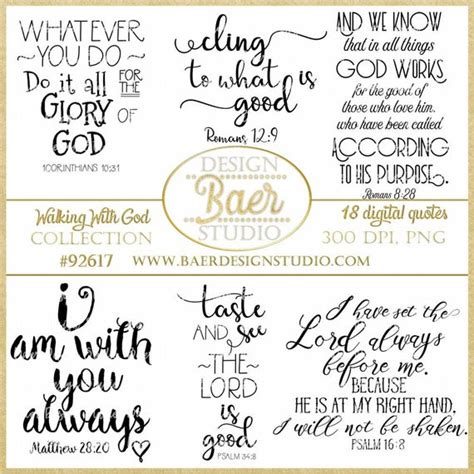 WHATEVER
YOU DO
Do it all FOR THE
GLORY OF
GOD
1CORINTHIANS 10:31
cling
to what is
good
Romans 12:9
AND WE KNOW
that in all things
GOD WORKS
for the good of
those who love him,
who have been called
ACCORDING
TO HIS PURPOSE.
Romans 8:28
Walking With God
COLLECTION
#92617
DESIGN
Baer
STUDIO
18 digital quotes
300 DPI, PNG
WWW.BAERDESIGNSTUDIO.COM
i
am with
you
always
Matthew 28:20
taste
AND see
~THE~
LORD
is
good
PSALM 34:8
I have set the
Lord always
before me.
BECAUSE
HE IS AT MY RIGHT HAND,
I will not be shaken.
PSALM 16:8